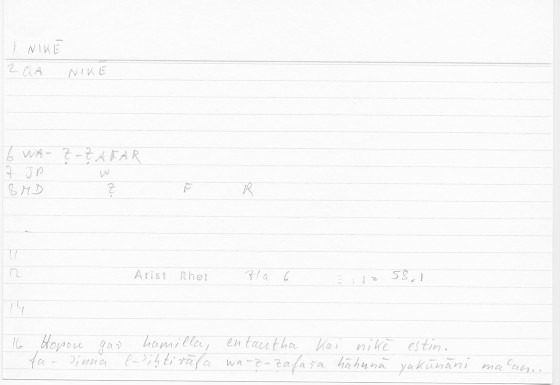 1 NIKĒ
2 QA NIKĒ
6 WA- Ẓ-ẒAFAR
7 JP W
8 MD Ẓ F R
11
12 Arist Rhet 71a 6 58,1
14
16 Hopou gar hamilla, entautha kai nikē estin.
fa-ʾinna wa-ẓ-ẓafara hāhunā yakūnāni maʿan..